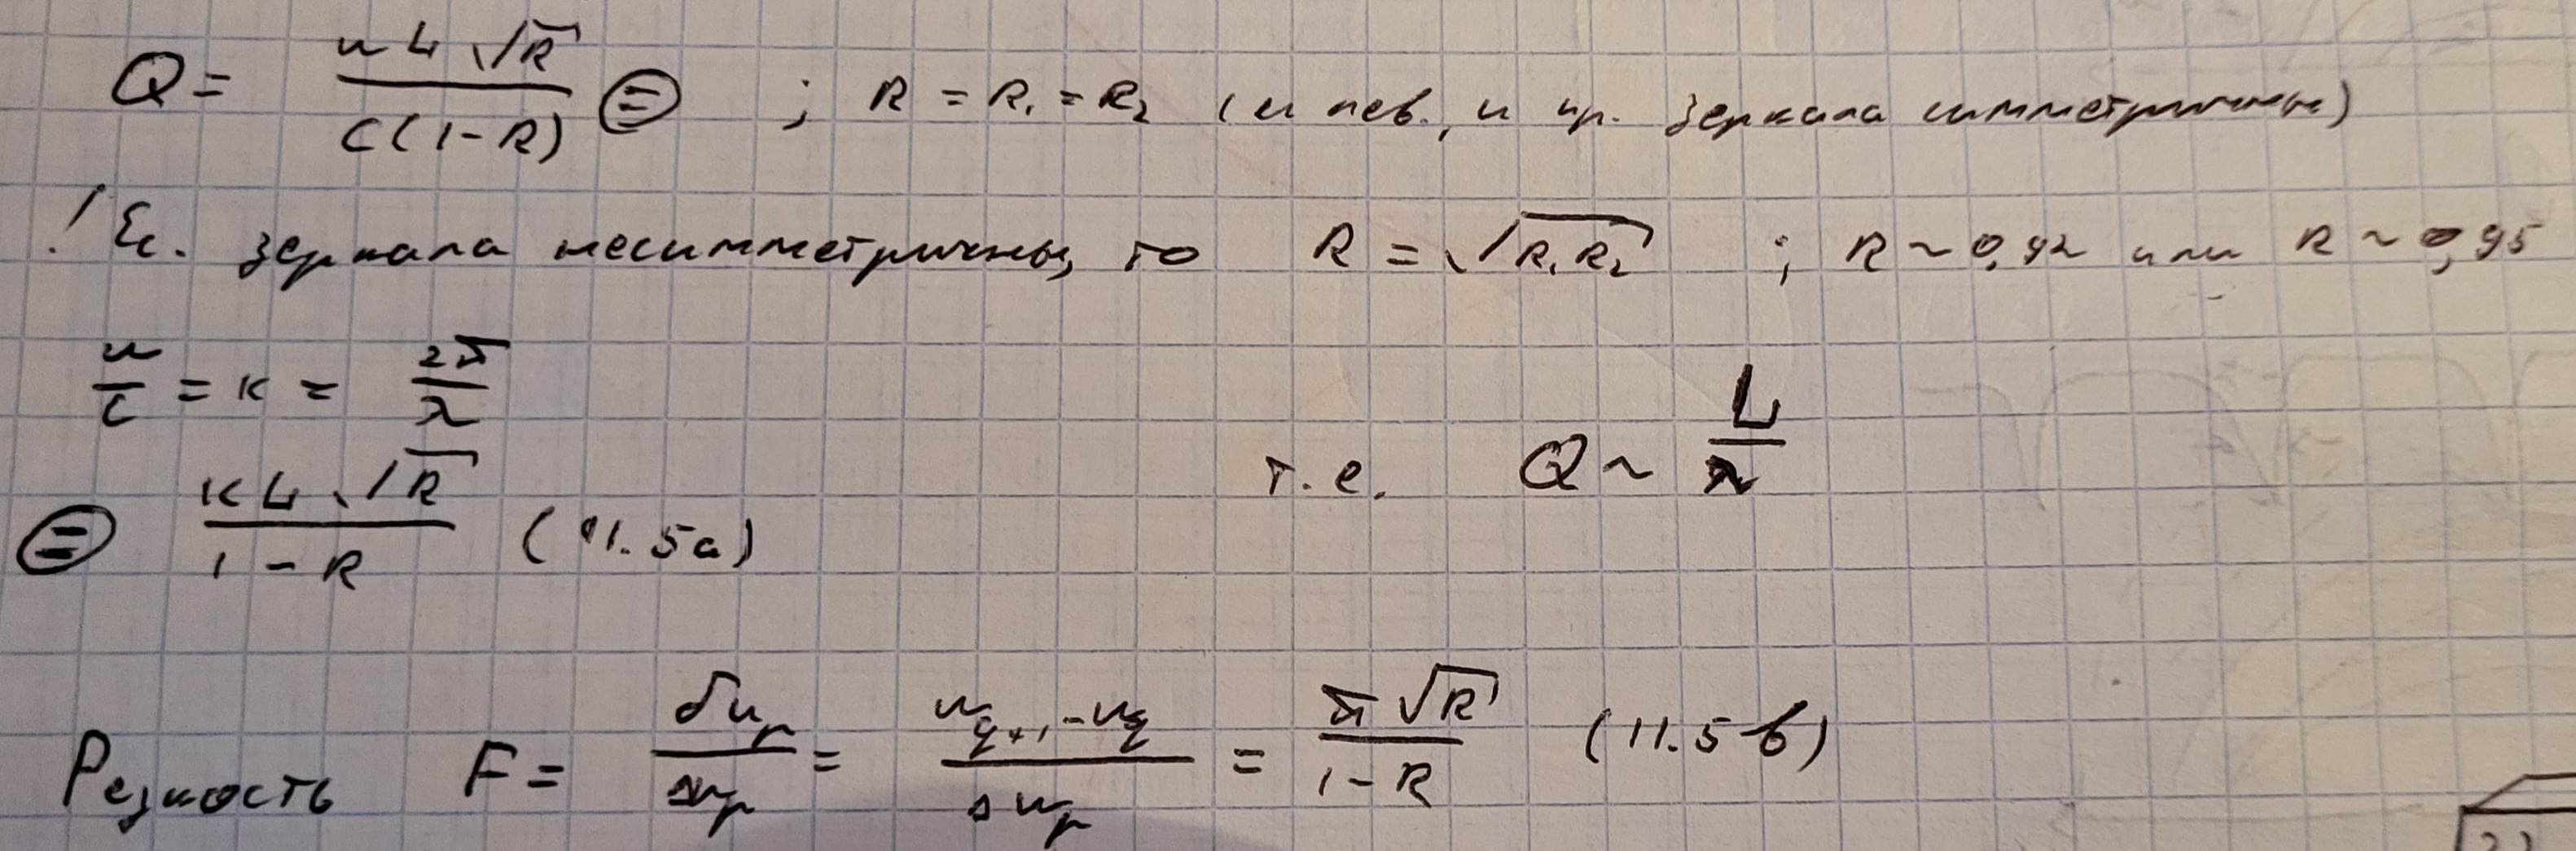 Q = ωL√R / c(1-R) ⊜ ; R = R₁ = R₂ (и лев., и пр. зеркала симметричны)
! Ес. зеркала несимметричны, то R = √R₁R₂ ; R ~ 0,92 или R ~ 0,95
ω/c = k = 2π/λ
т.е. Q ~ L/λ
⊜ kL√R / 1-R (11.5а)
Резкость F = δωₚ/Δωₚ = ω_{q+1} - ω_q / Δωₚ = π√R / 1-R (11.5б)